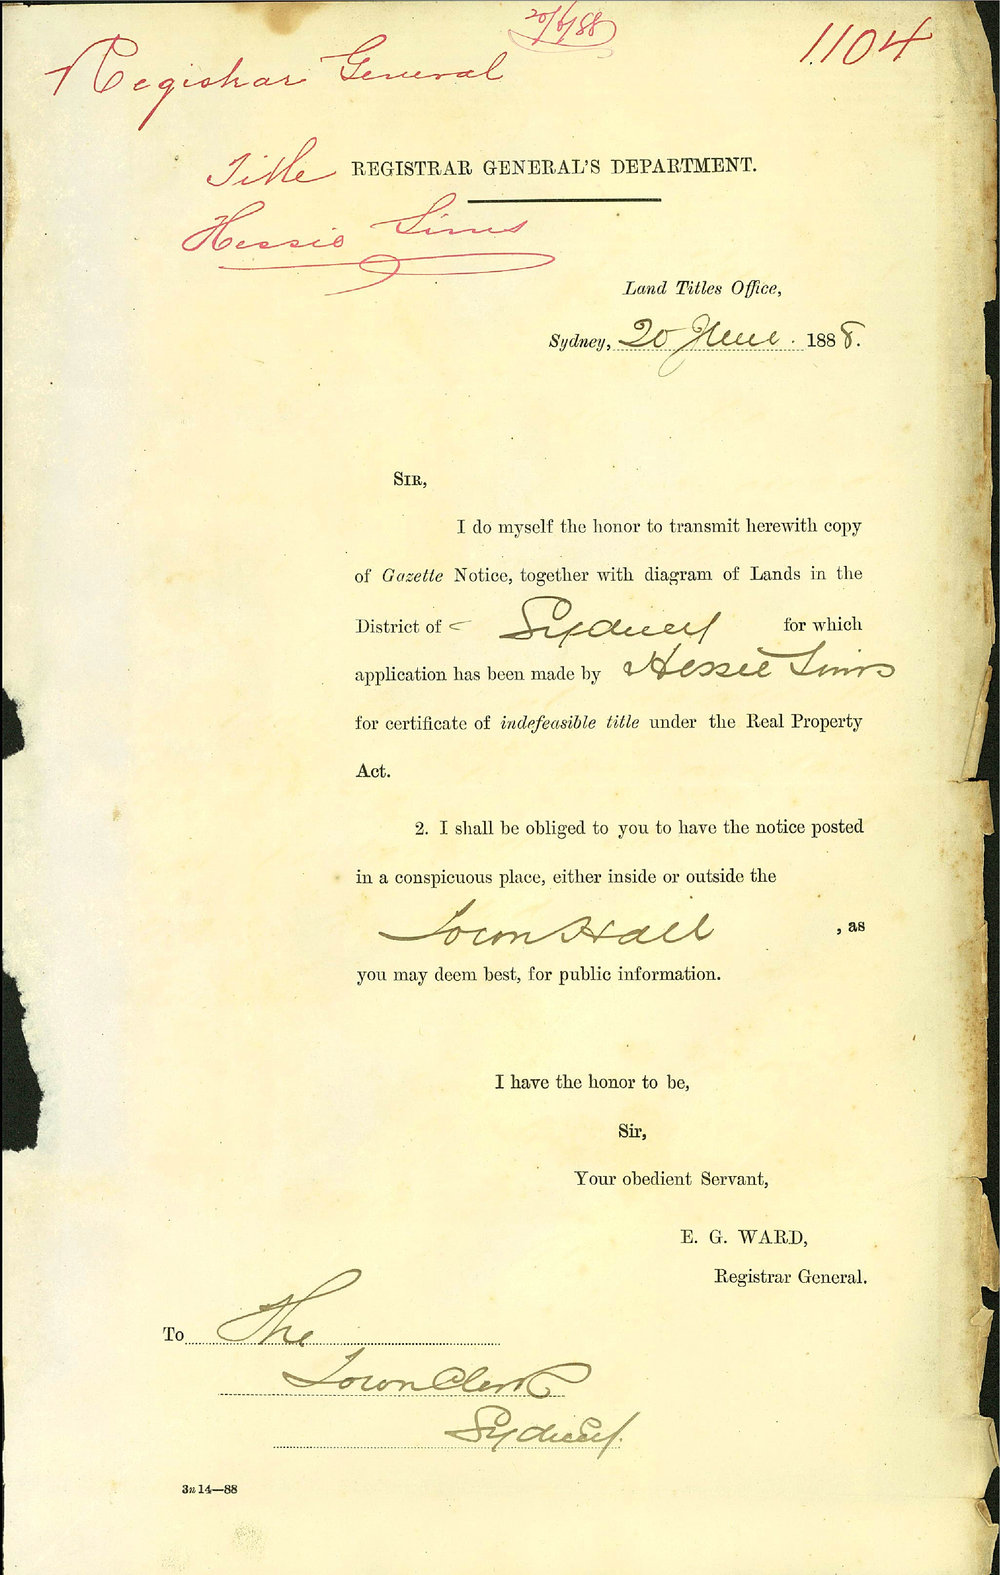 20/6/88
1104
Registrar General
Title
REGISTRAR GENERAL'S DEPARTMENT.
Hessie Sims
Land Titles Office,
Sydney, 20 June. 1888.
SIR,
I do myself the honor to transmit herewith copy
of Gazette Notice, together with diagram of Lands in the
District of Sydney for which
application has been made by Hessie Sims
for certificate of indefeasible title under the Real Property
Act.
2. I shall be obliged to you to have the notice posted
in a conspicuous place, either inside or outside the
Town Hall , as
you may deem best, for public information.
I have the honor to be,
Sir,
Your obedient Servant,
E. G. WARD,
Registrar General.
To The
Town Clerk
Sydney.
3n 14—88